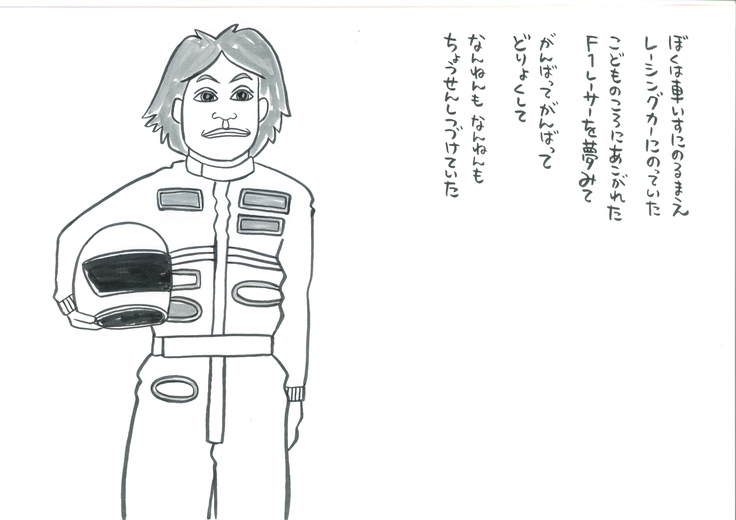 ぼくは車いすにのるまえ
レーシングカーにのっていた
こどものころにあこがれた
F1レーサーを夢みて
がんばってがんばって
どりょくして
なんねんも なんねんも
ちょうせんしつづけていた